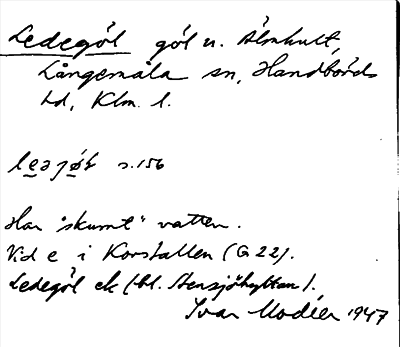 Ledegöl göl n. Älmhult,
Långemåla sn, Handbörds
hd, Klm. l.
s. 156
Har "skumt" vatten.
Vid e i Korstallen (G 22).
Ledegöl ek (bl. Stensjöhyltan).
Ivar Modéer 1947